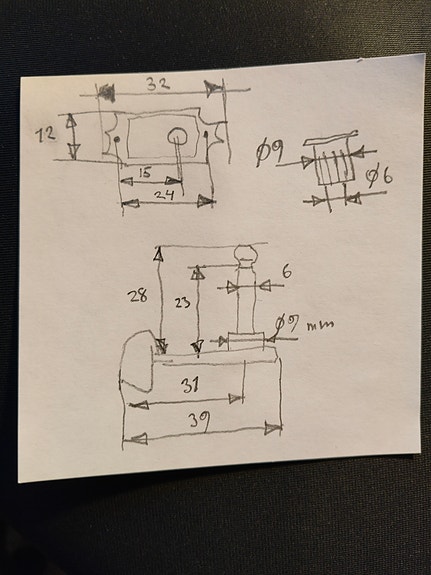 32
12
15
24
Ø9
Ø6
28
23
6
Ø9 mm
31
39